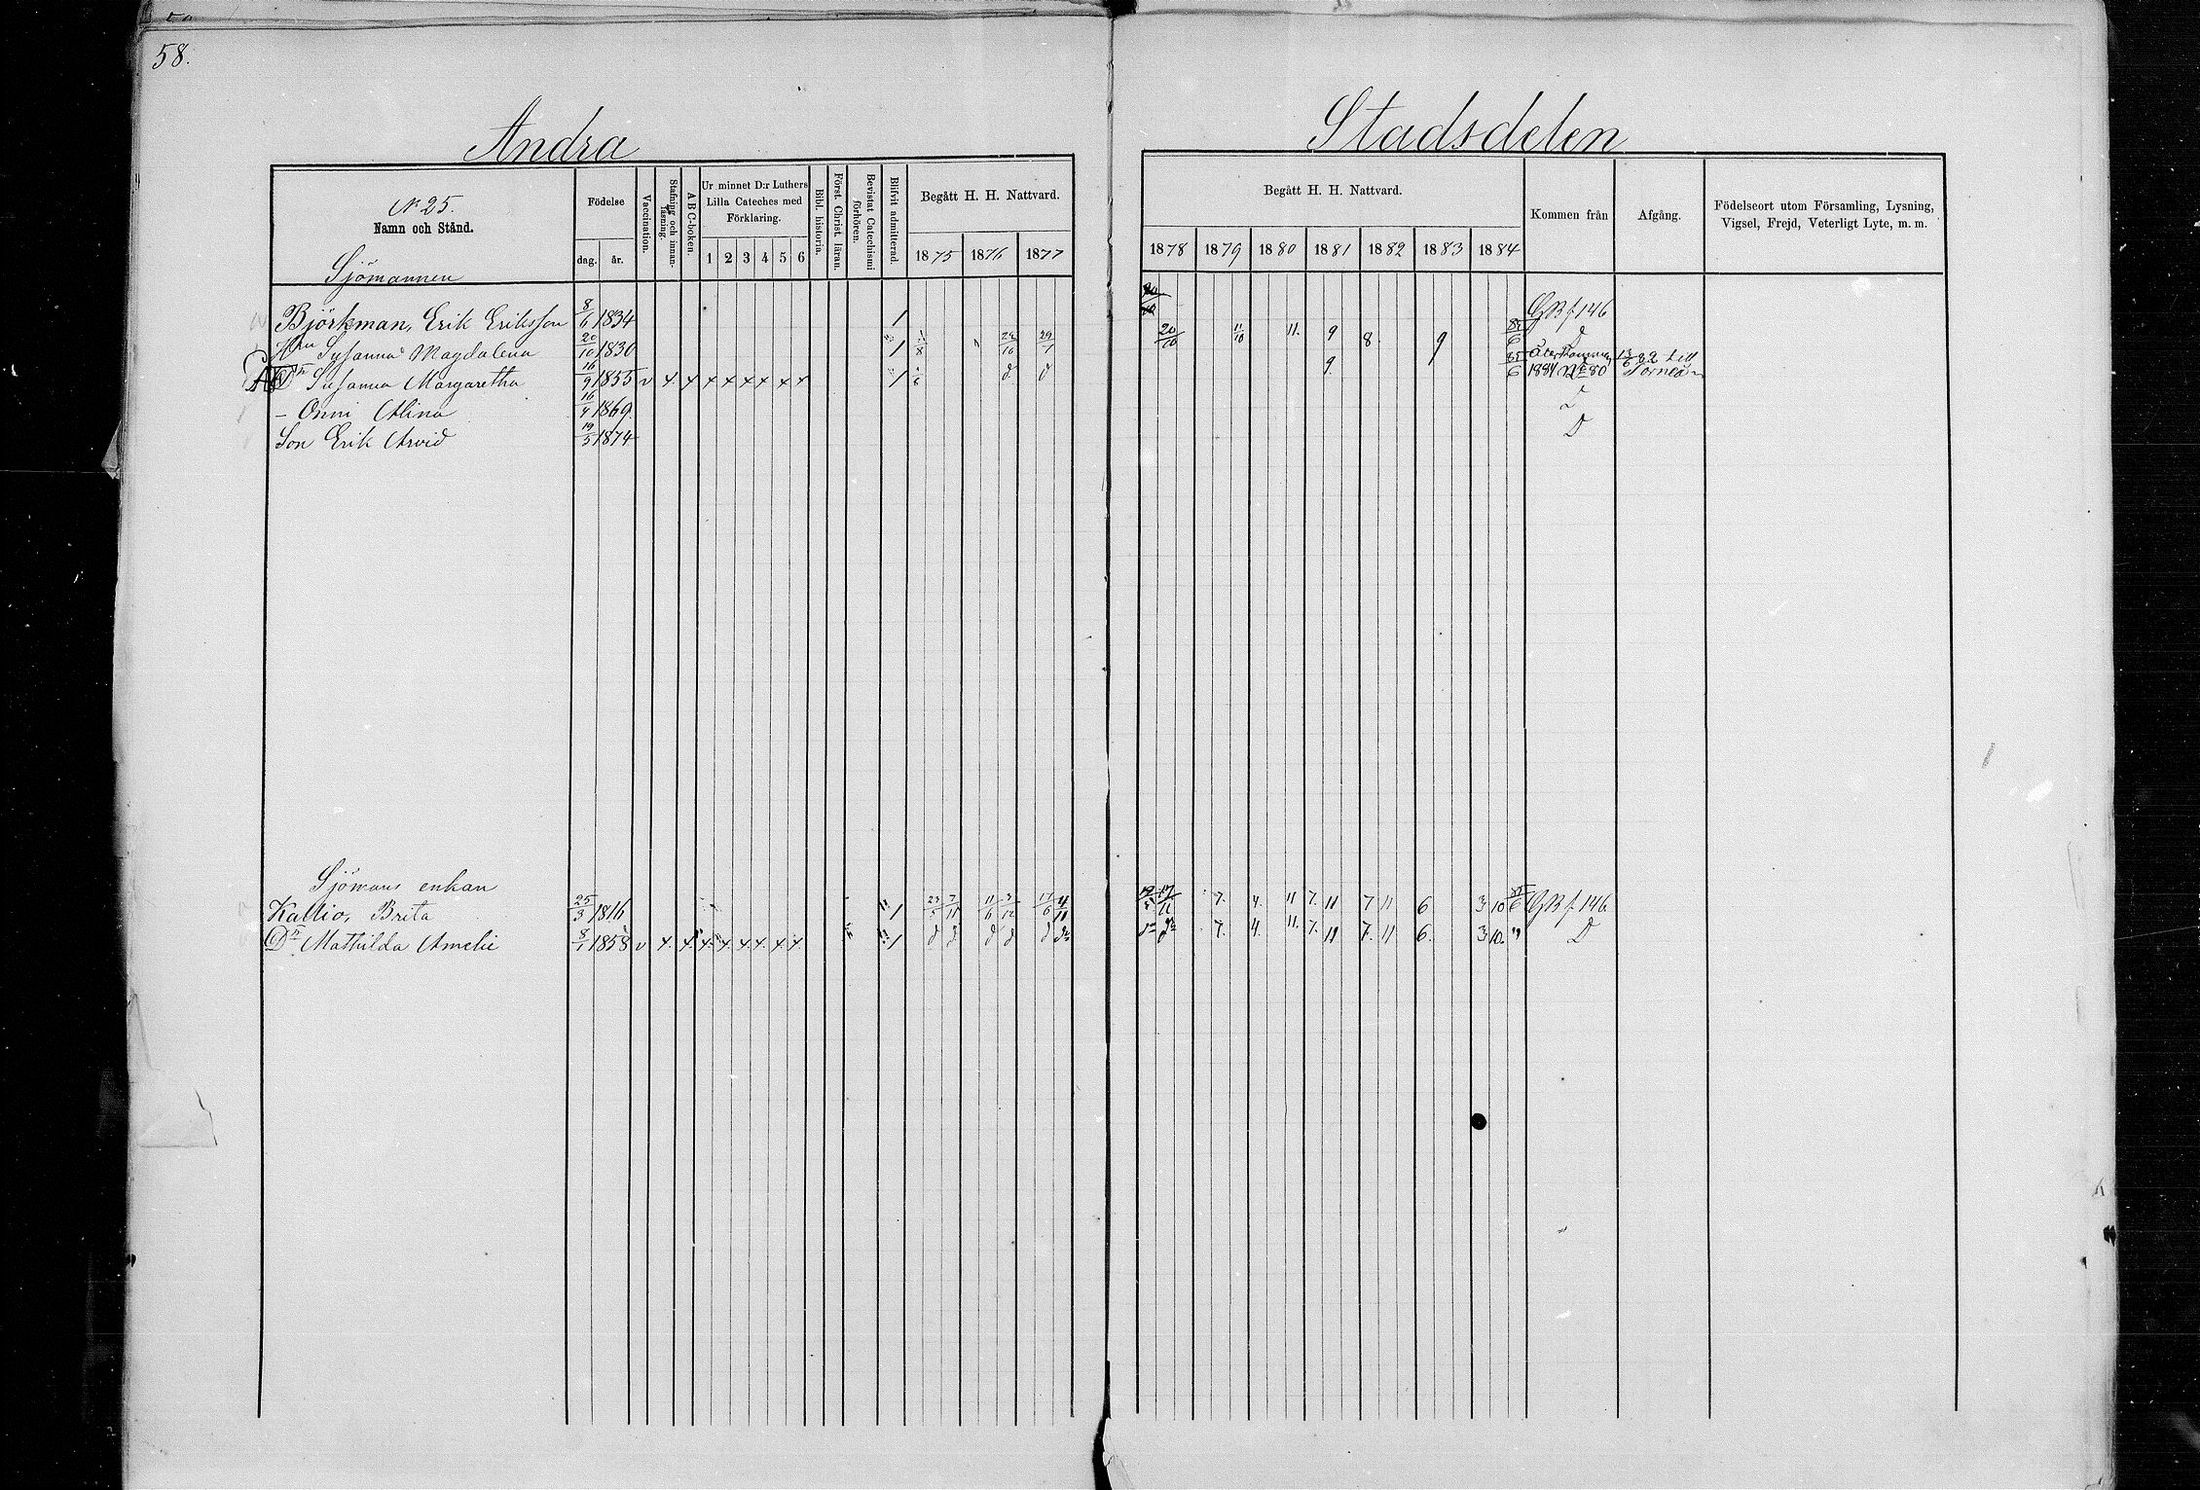 58.
Andra Stadsdelen
N 25.
Namn och Stånd.
Födelse
dag. år.
Vaccination.
Stafning och innan-läsning.
A B C-boken.
Ur minnet D:r Luthers
Lilla Cateches med
Förklaring.
1 2 3 4 5 6
Bibl. historia.
Först. Christ. läran.
Bevistat Catechismi förhören.
Blifvit admitterad.
Begått H. H. Nattvard.
1875 1876 1877
Begått H. H. Nattvard.
1878 1879 1880 1881 1882 1883 1884
Kommen från
Afgång.
Födelseort utom Församling, Lysning,
Vigsel, Frejd, Veterligt Lyte, m. m.
Sjömannen
Björkman, Erik Eriksson 8/6 1834 1 GB f 146
Hru Susanna Magdalena 20/10 1830 1 20/10 11/10 11. 9 8. 9 D
Dr Susanna Margaretha 16/9 1855 v x x x x x x x x 1 9. 1884 No 80 13/6 82 till Torneå
- Onni Alina 16/4 1869
Son Erik Arvid 19/5 1874 D
Sjömans enkan
Kallio, Brita 25/3 1816 1 7/11 11/6 3/12 17/6 4/11 17/11 7. 4. 11 7. 11 7 11 6 3 10 GB f. 146.
Dr Mathilda Amelie 8/1 1858 v x x x x x x x x 1 7. 4. 11. 7. 11 7. 11 6. 3 10. " D